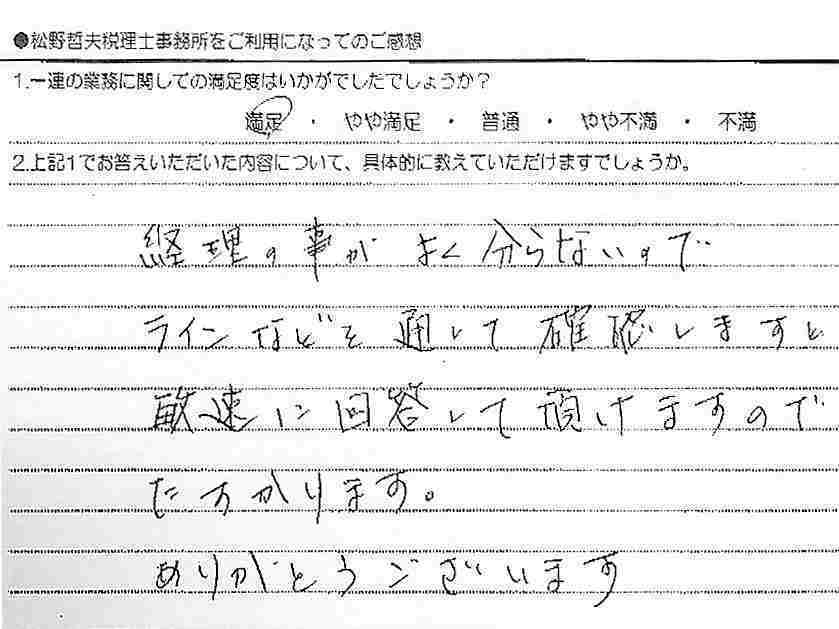 ●松野哲夫税理士事務所をご利用になってのご感想
1.一連の業務に関しての満足度はいかがでしたでしょうか？
満足 ・ やや満足 ・ 普通 ・ やや不満 ・ 不満
2.上記1でお答えいただいた内容について、具体的に教えていただけますでしょうか。
経理の事がよく分らないので
ラインなどを通して確認しますと
敏速に回答して頂けますので
たすかります。
ありがとうございます